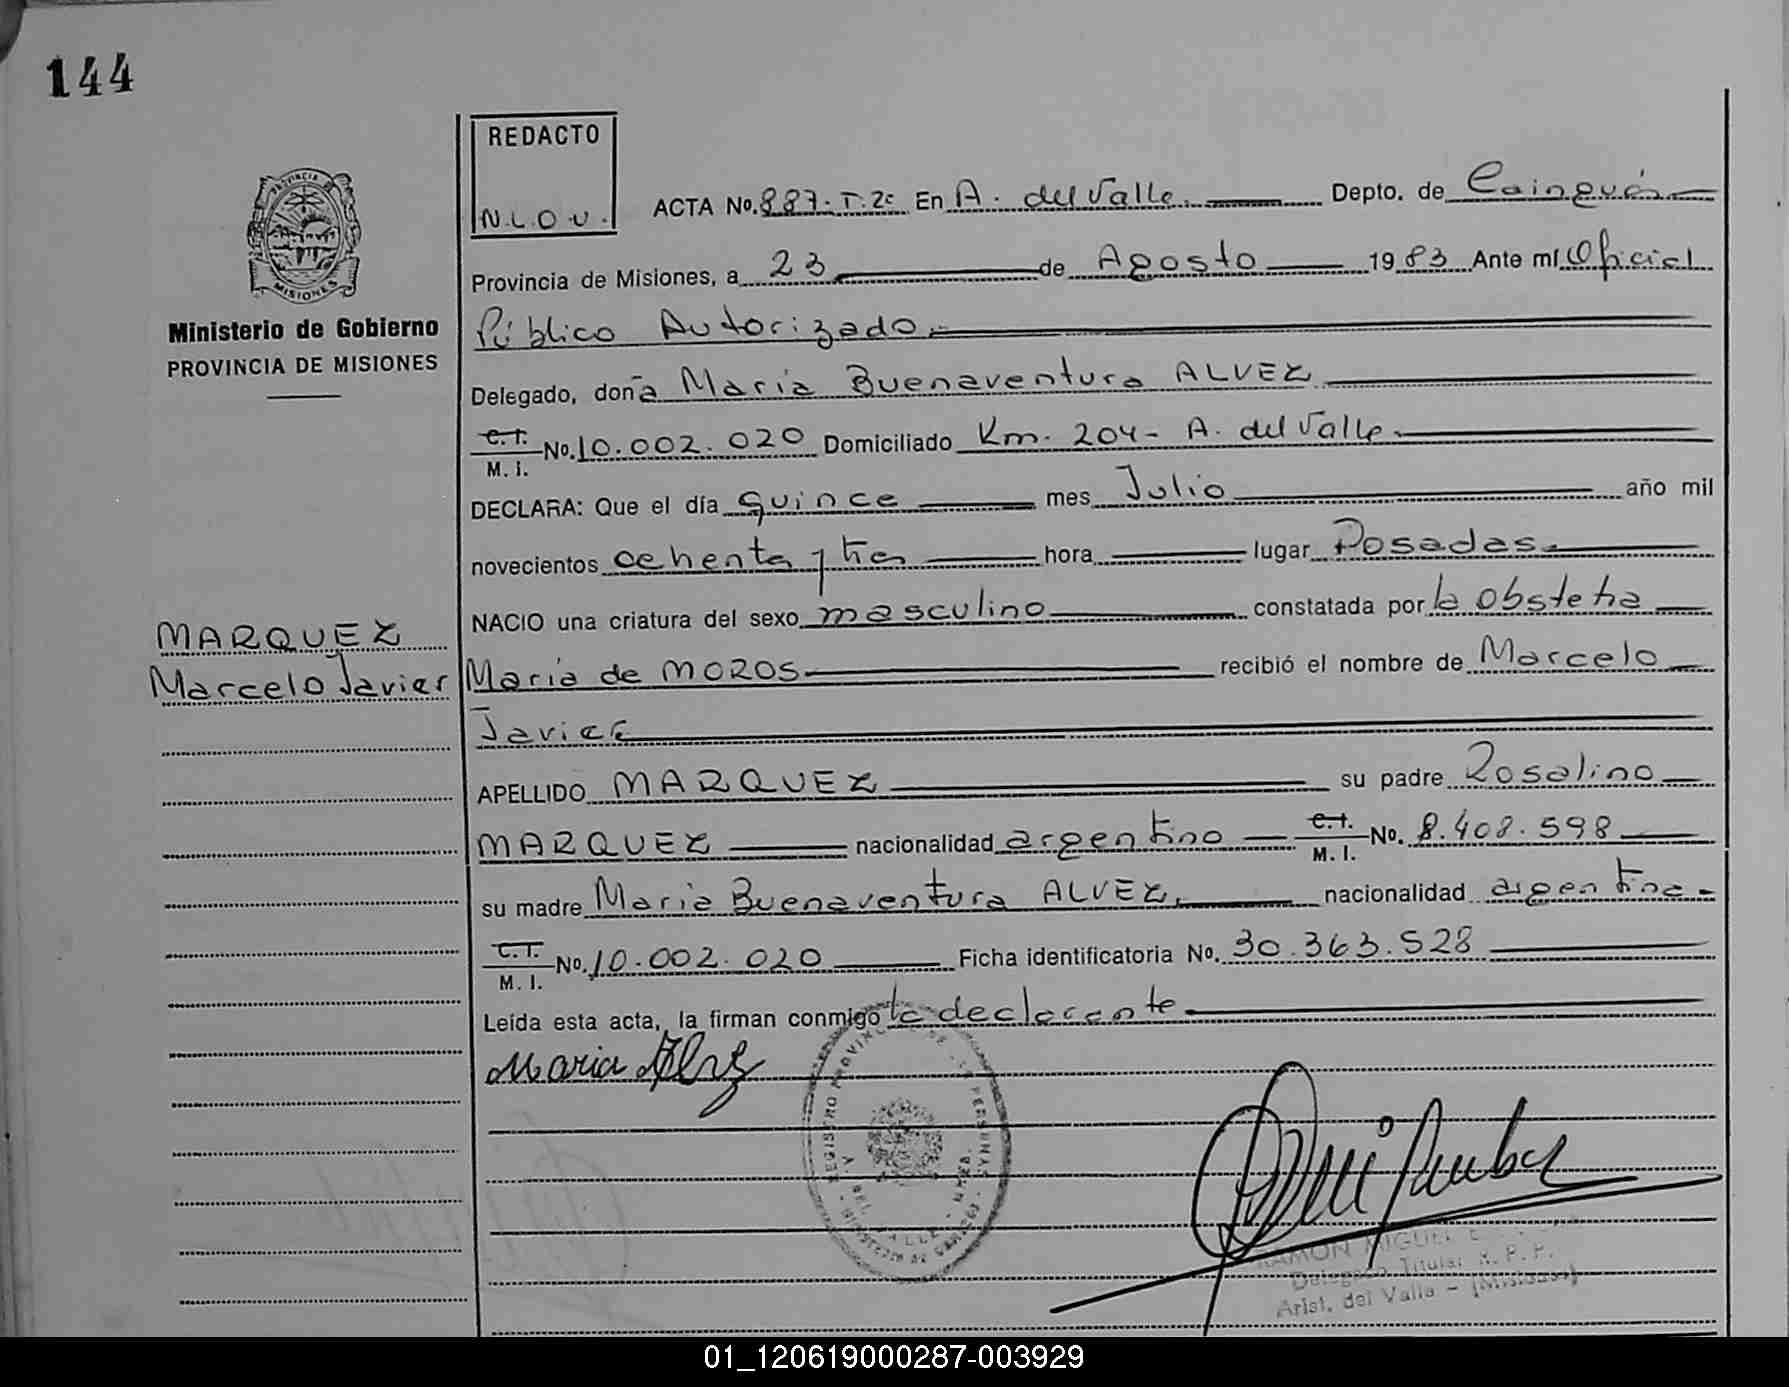 144
REDACTO
N.L.O.V.
PROVINCIA
MISIONES
Ministerio de Gobierno
PROVINCIA DE MISIONES
MARQUEZ
Marcelo Javier
ACTA No. 887-T.2º En A. del Valle. Depto. de Cainguás
Provincia de Misiones, a 23 de Agosto 1983 Ante mí Oficial
Público Autorizado.
Delegado, doña María Buenaventura ALVEZ
C.I. M.I. No. 10.002.020 Domiciliado Km. 204 - A. del Valle.
DECLARA: Que el día quince mes Julio año mil
novecientos ochenta y tres hora lugar Posadas.
NACIO una criatura del sexo masculino constatada por la obstetra
María de MOROS recibió el nombre de Marcelo
Javier
APELLIDO MARQUEZ su padre Rosalino
MARQUEZ nacionalidad argentino C.I. M.I. No. 8.408.598
su madre María Buenaventura ALVEZ, nacionalidad argentina -
C.I. M.I. No. 10.002.020 Ficha identificatoria No. 30.363.528
Leída esta acta, la firman conmigo la declarante
Maria Alvez
REGISTRO PROVINCIAL DE LAS PERSONAS
RAMON MIGUEL
Delegado Titular R.P.P.
Arist. del Valle - (Misiones)
01_120619000287-003929